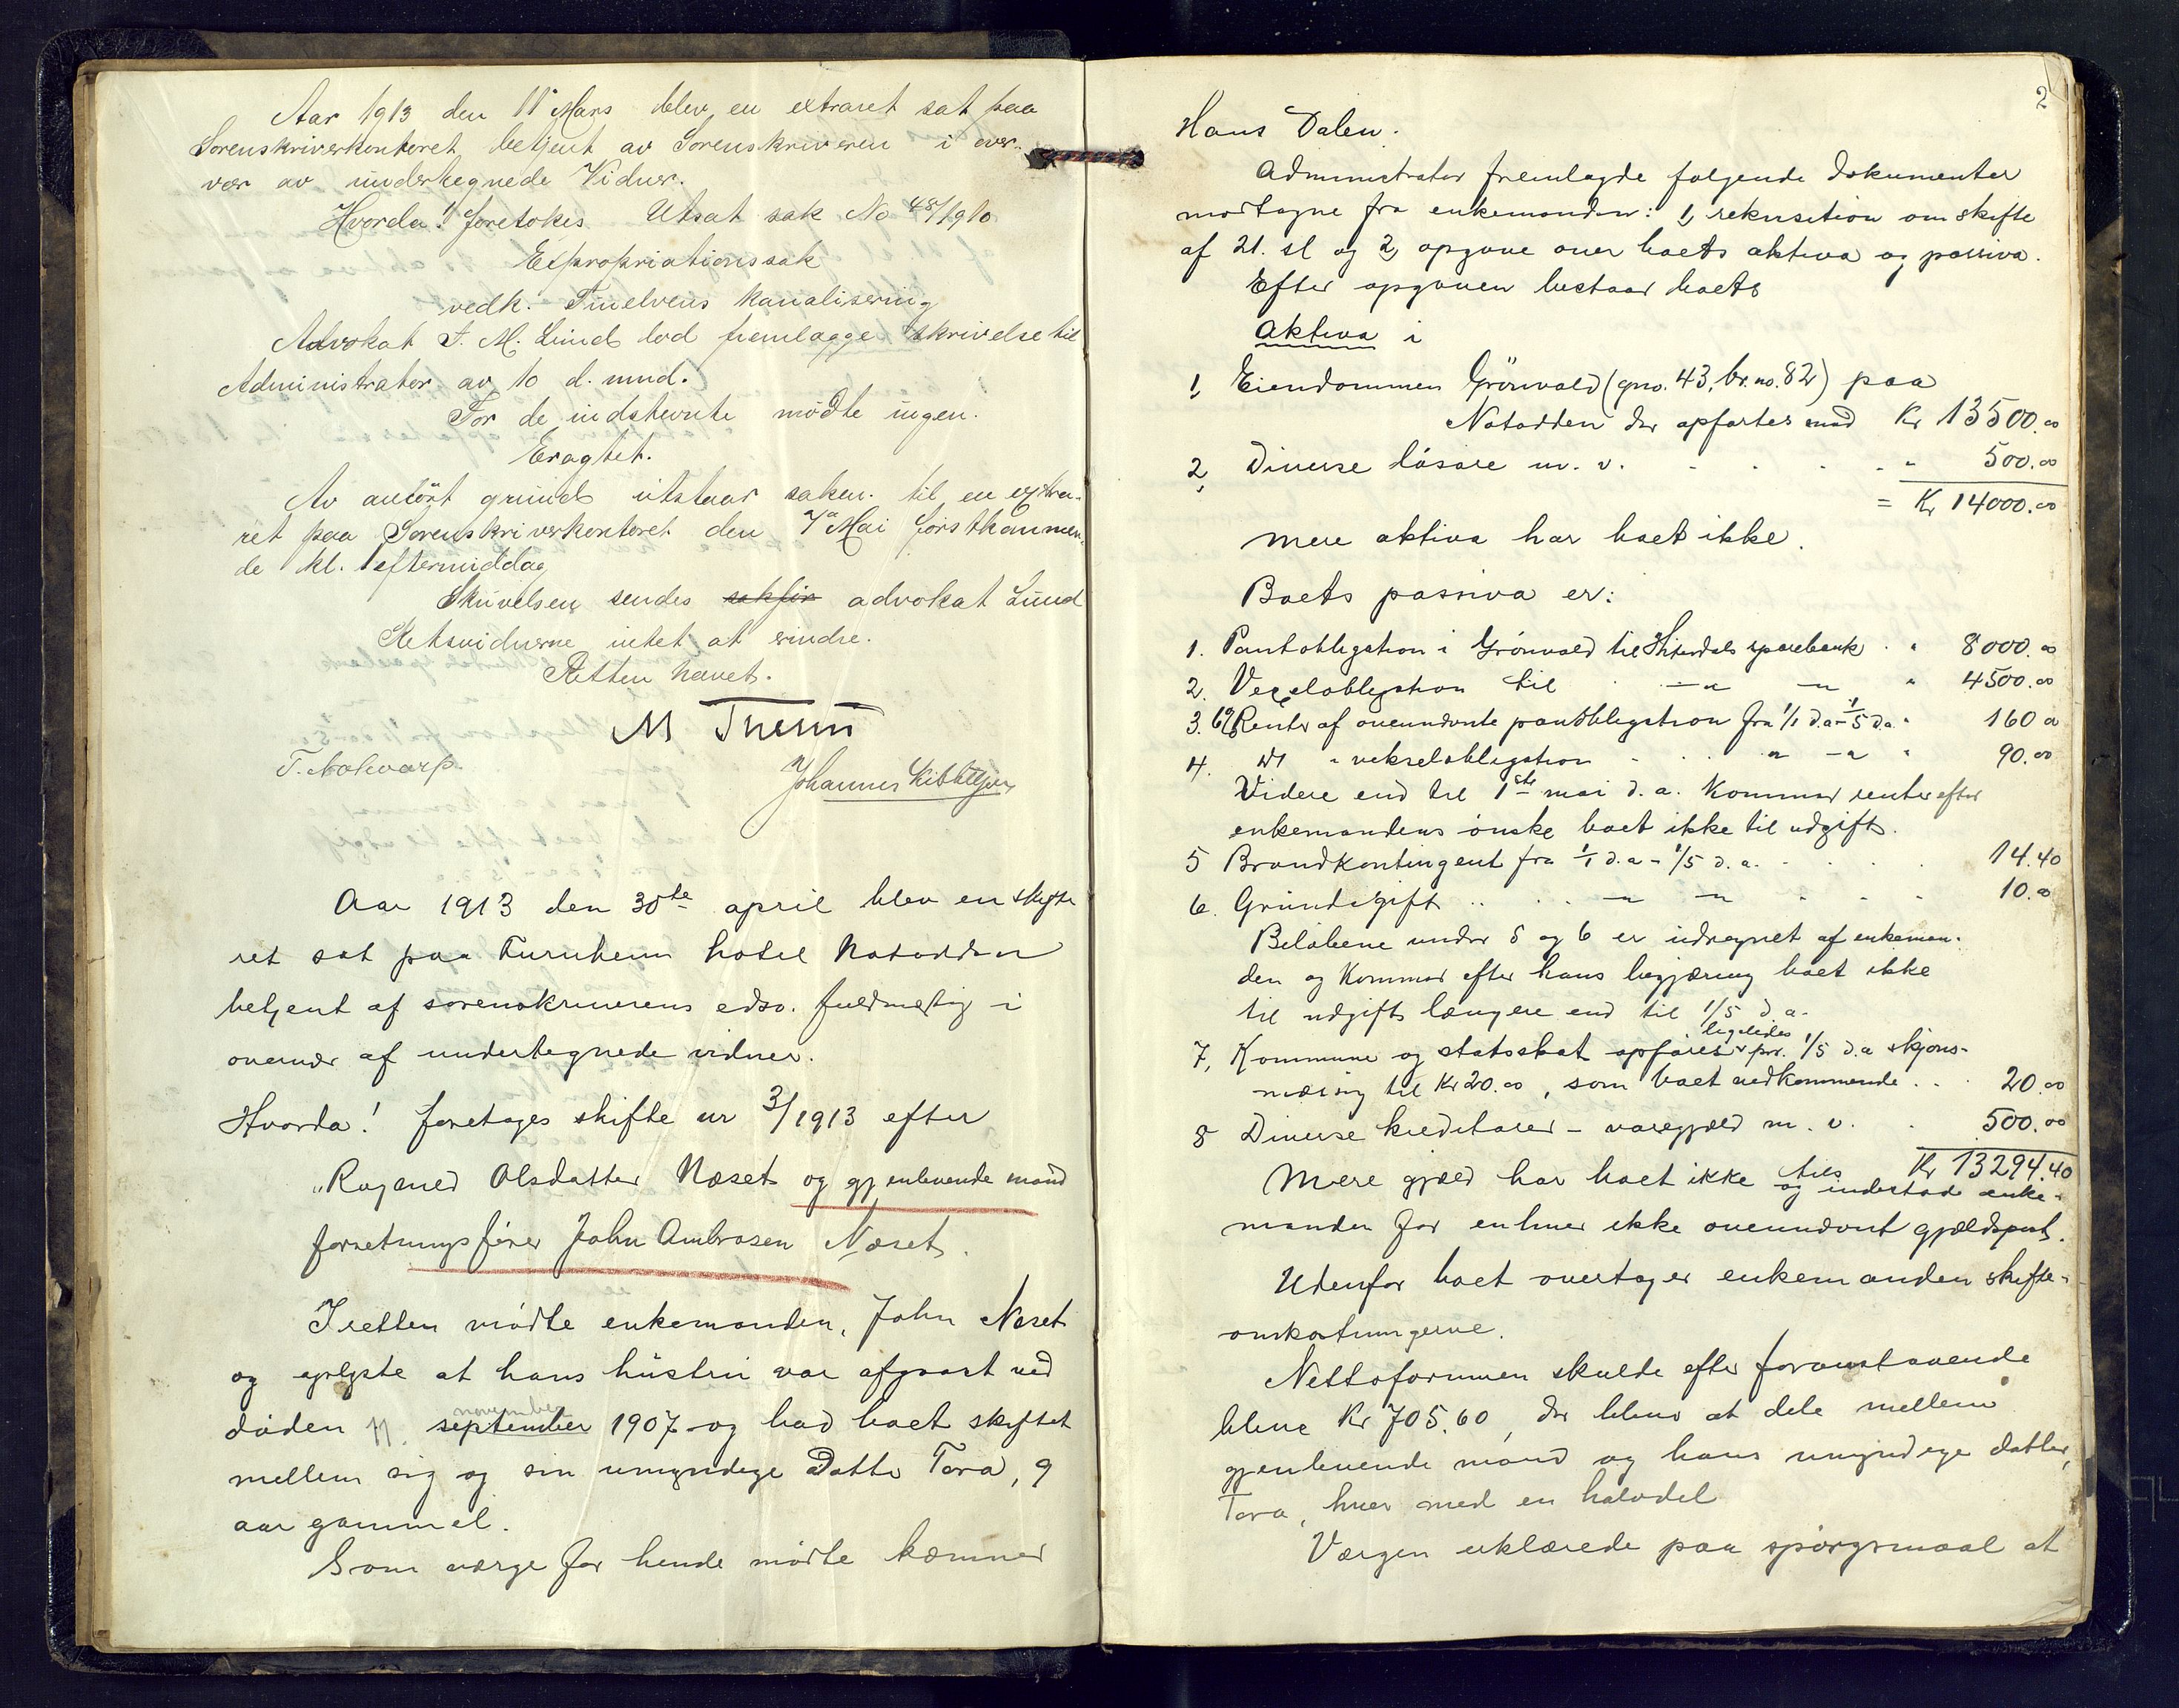 Aar 1913 den 11 Mars blev en extraret sat paa
Sorenskriverkontoret betjent av Sorenskriveren i over-
vær av undertegnede Vidner.
Hvorda! foretokes Utsat sak No 48/1910
Expropriationssak
vedk. Tinelvens kanalisering
Advokat J. M. Lund lod fremlægge skrivelse til
Administrator av 10 d. mnd.
For de indstevnte mødte ingen.
Eragtet.
Av anført grund utstaar saken til en extra-
ret paa Sorenskriverkontoret den 7 Mai førstkommen-
de kl. 1 eftermiddag
Skrivelsen sendes sakfør advokat Lund
Retsvidnerne intet at erindre.
Retten hævet.
M
Johannes
Aar 1913 den 30te april blev en skifte
ret sat paa Furuheim hotel Notodden
betjent af sorenskriverens edsv. fuldmegtig i
overvær af undertegnede vidner.
Hvorda! foretages skifte nr 3/1913 efter
Ragnhild Olsdatter Næset og gjenlevende mand
forretningsfører John Ambrosen Næset.
I retten mødte enkemanden, John Næset
og oplyste at hans hustru var afgaaet ved
november
døden 11. september 1907 og bad boet skiftet
mellem sig og sin umyndige Datter Tora, 9
aar gammel.
Som værge for hende mødte kæmner
2
Hans Dalen.
Administrator fremlagde følgende dokumenter
modtagne fra enkemanden: 1, rekvisition om skifte
af 21. sl og 2, opgave over boets aktiva og passiva.
Efter opgaven bestaar boets
Aktiva i
1, Eiendommen Grönvold (gno. 43, br. no. 82) paa
Notodden der opføres med Kr 13500.00
2, Diverse løsøre m. v. . . . . " 500.00
= Kr 14000.00
Mere aktiva har boet ikke.
Boets passiva er:
1. Pantobligation i Grönvold til Hiterdals sparebank . " 8000.00
2. Vexelobligation til . —"— —"— " 4500.00
3. 6% Renter af ovennævnte pantobligation fra 1/1 d.a - 1/5 d.a. " 160 00
4. " vekselobligation . . . " —" " 90.00
Videre end til 1ste mai d. a. kommer renter efter
enkemandens ønske boet ikke til udgift.
5 Brandkontingent fra 1/1 d.a - 1/5 d.a. . . . . 14.40
6. Grundavgift . . . . —"— —"— . . . 10.00
Beløbene under 5 og 6 er udregnet af enkeman-
den og kommer efter hans begjæring boet ikke
til udgift længere end til 1/5 d.a.
ligeledes
7, Kommune og statsskat opføres pr. 1/5 d.a skjøns-
mæsig til Kr 20.00, som boet vedkommende . . 20.00
8 Diverse kreditorer - varegjæld m. v. . 500.00
tils Kr 13294.40
Mere gjæld har boet ikke og indestod enke-
manden for enhver ikke ovennævnt gjældspost.
Udenfor boet overtager enkemanden skifte-
omkostningerne.
Nettoformuen skulde efter foranstaaende
blive Kr 705.60, der blive at dele mellem
gjenlevende mand og hans umyndige datter,
Tora, hver med en halvdel
Værgen erklærede paa spørgsmaal at